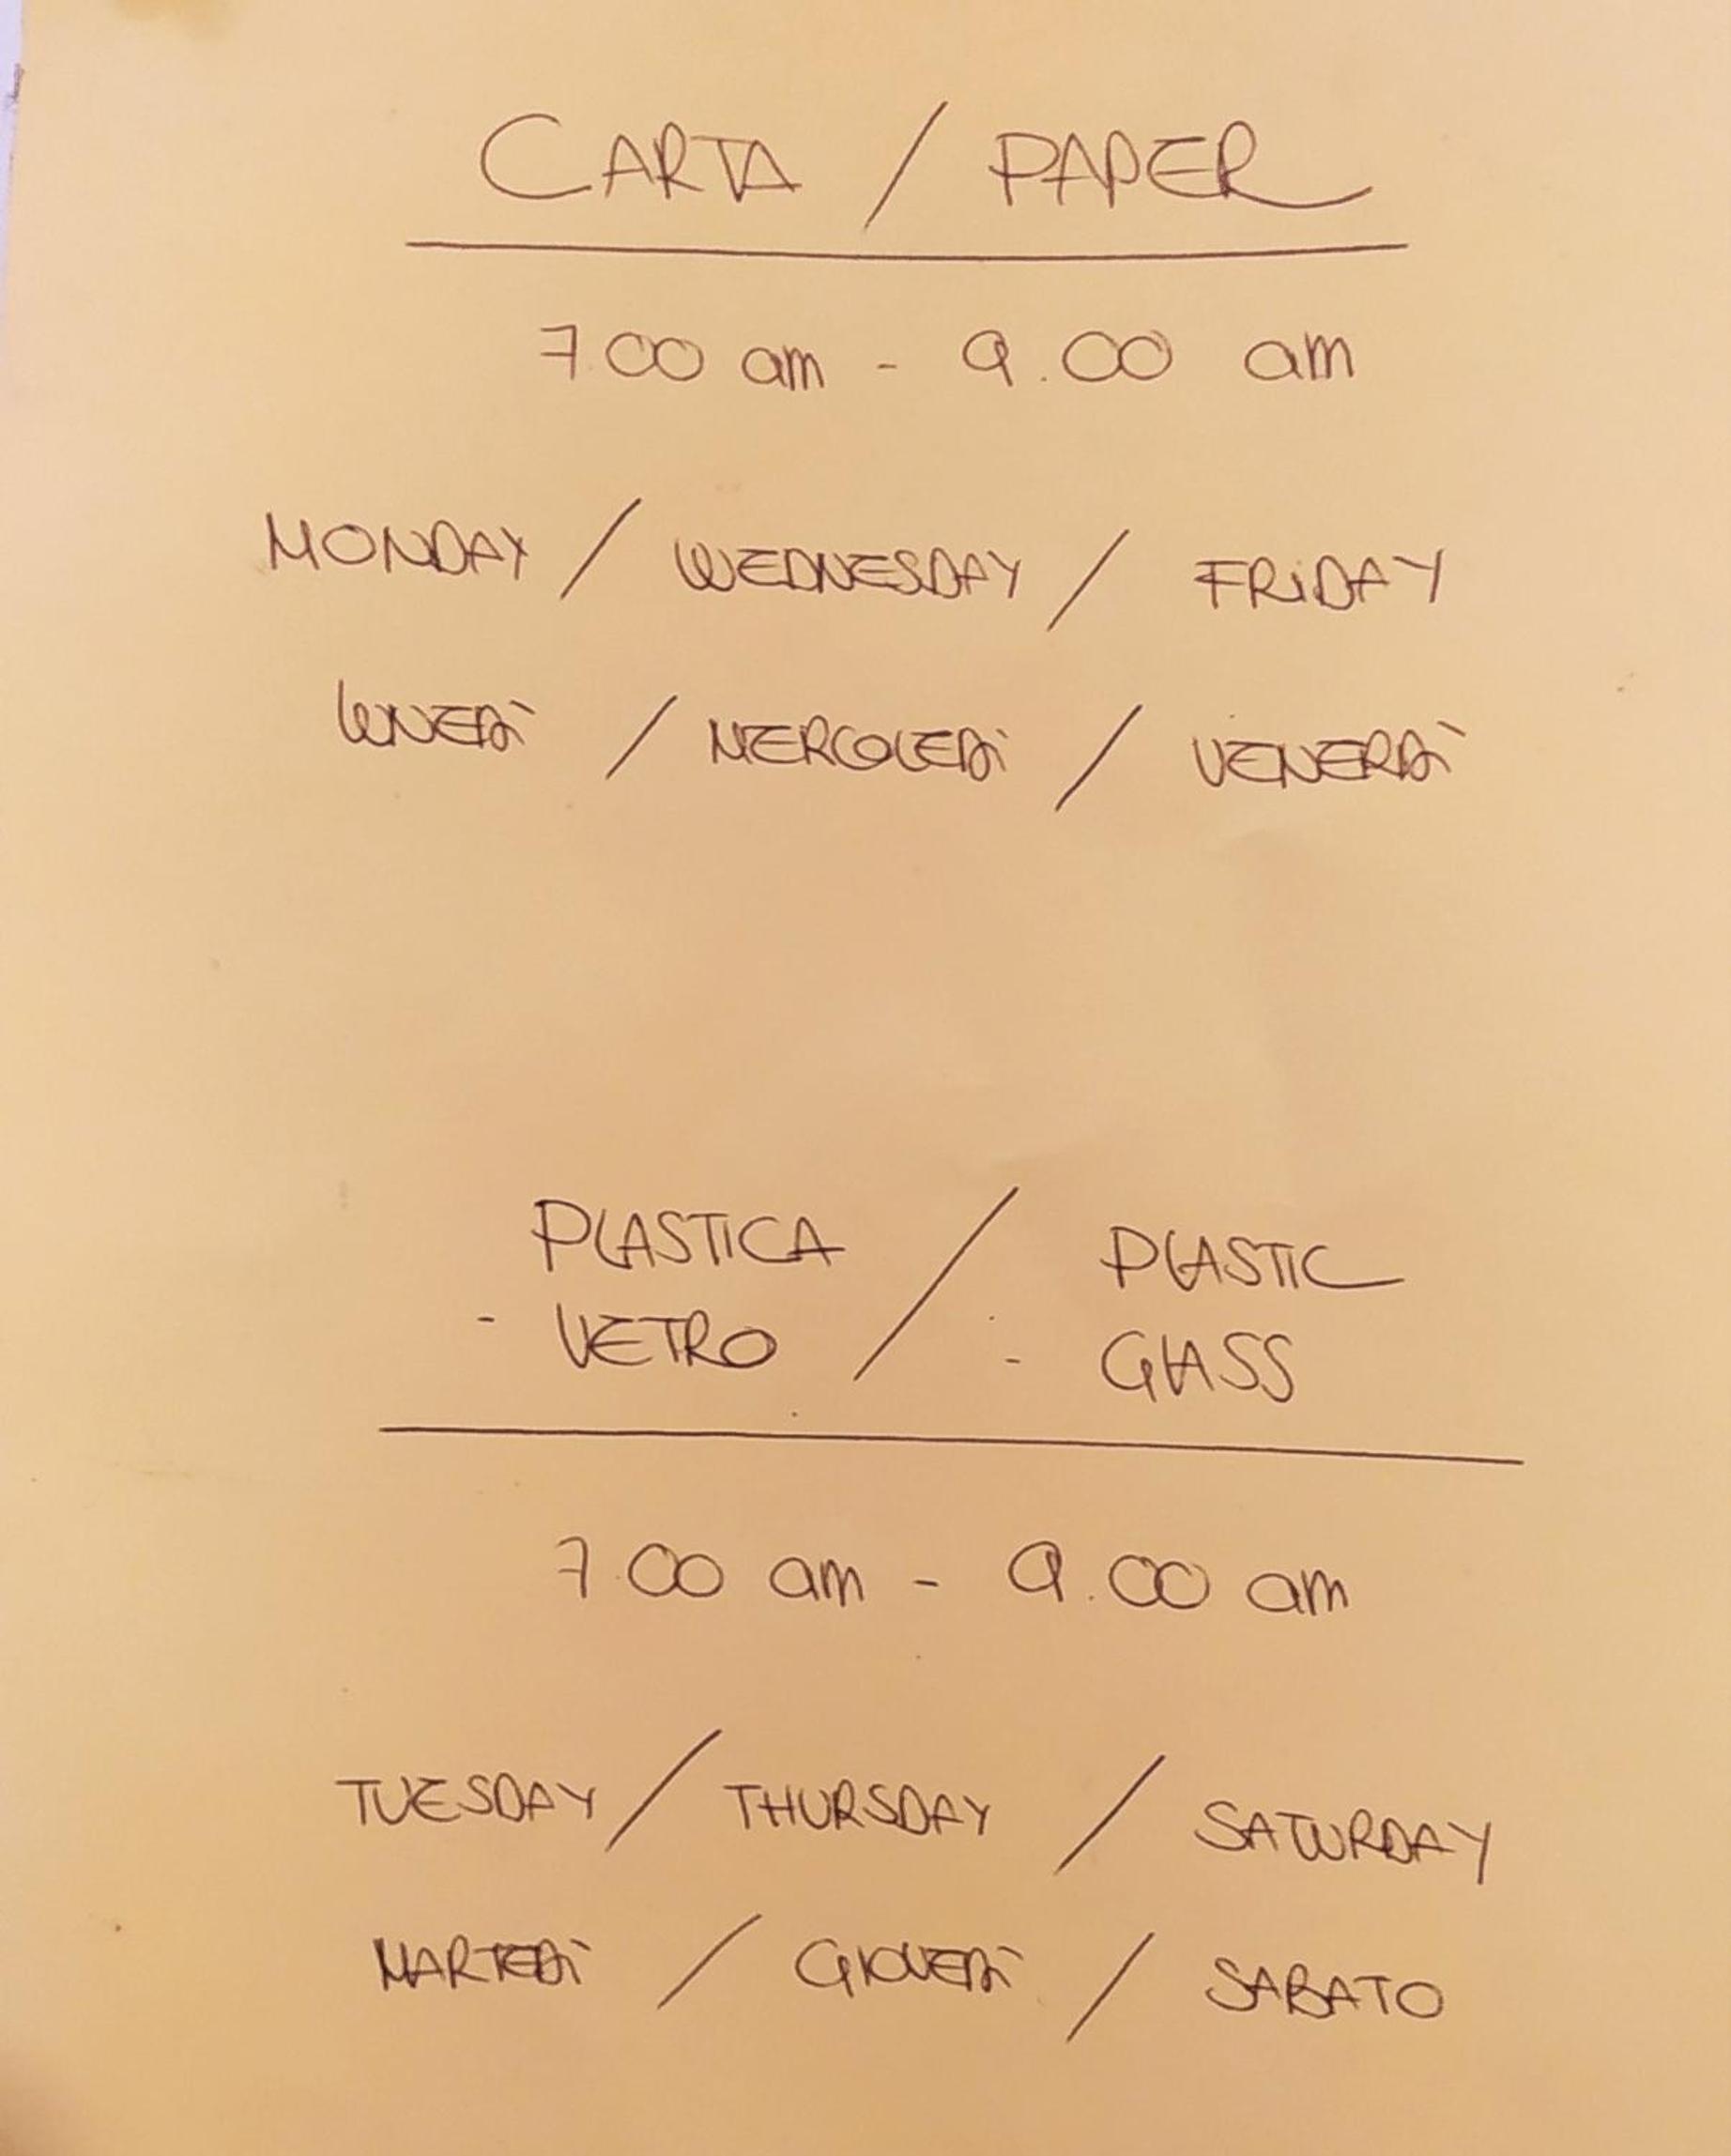 CARTA / PAPER
7.00 am - 9.00 am
MONDAY / WEDNESDAY / FRIDAY
LUNEDÌ / MERCOLEDÌ / VENERDÌ
PLASTICA / PLASTIC
- VETRO - GLASS
7.00 am - 9.00 am
TUESDAY / THURSDAY / SATURDAY
MARTEDÌ / GIOVEDÌ / SABATO